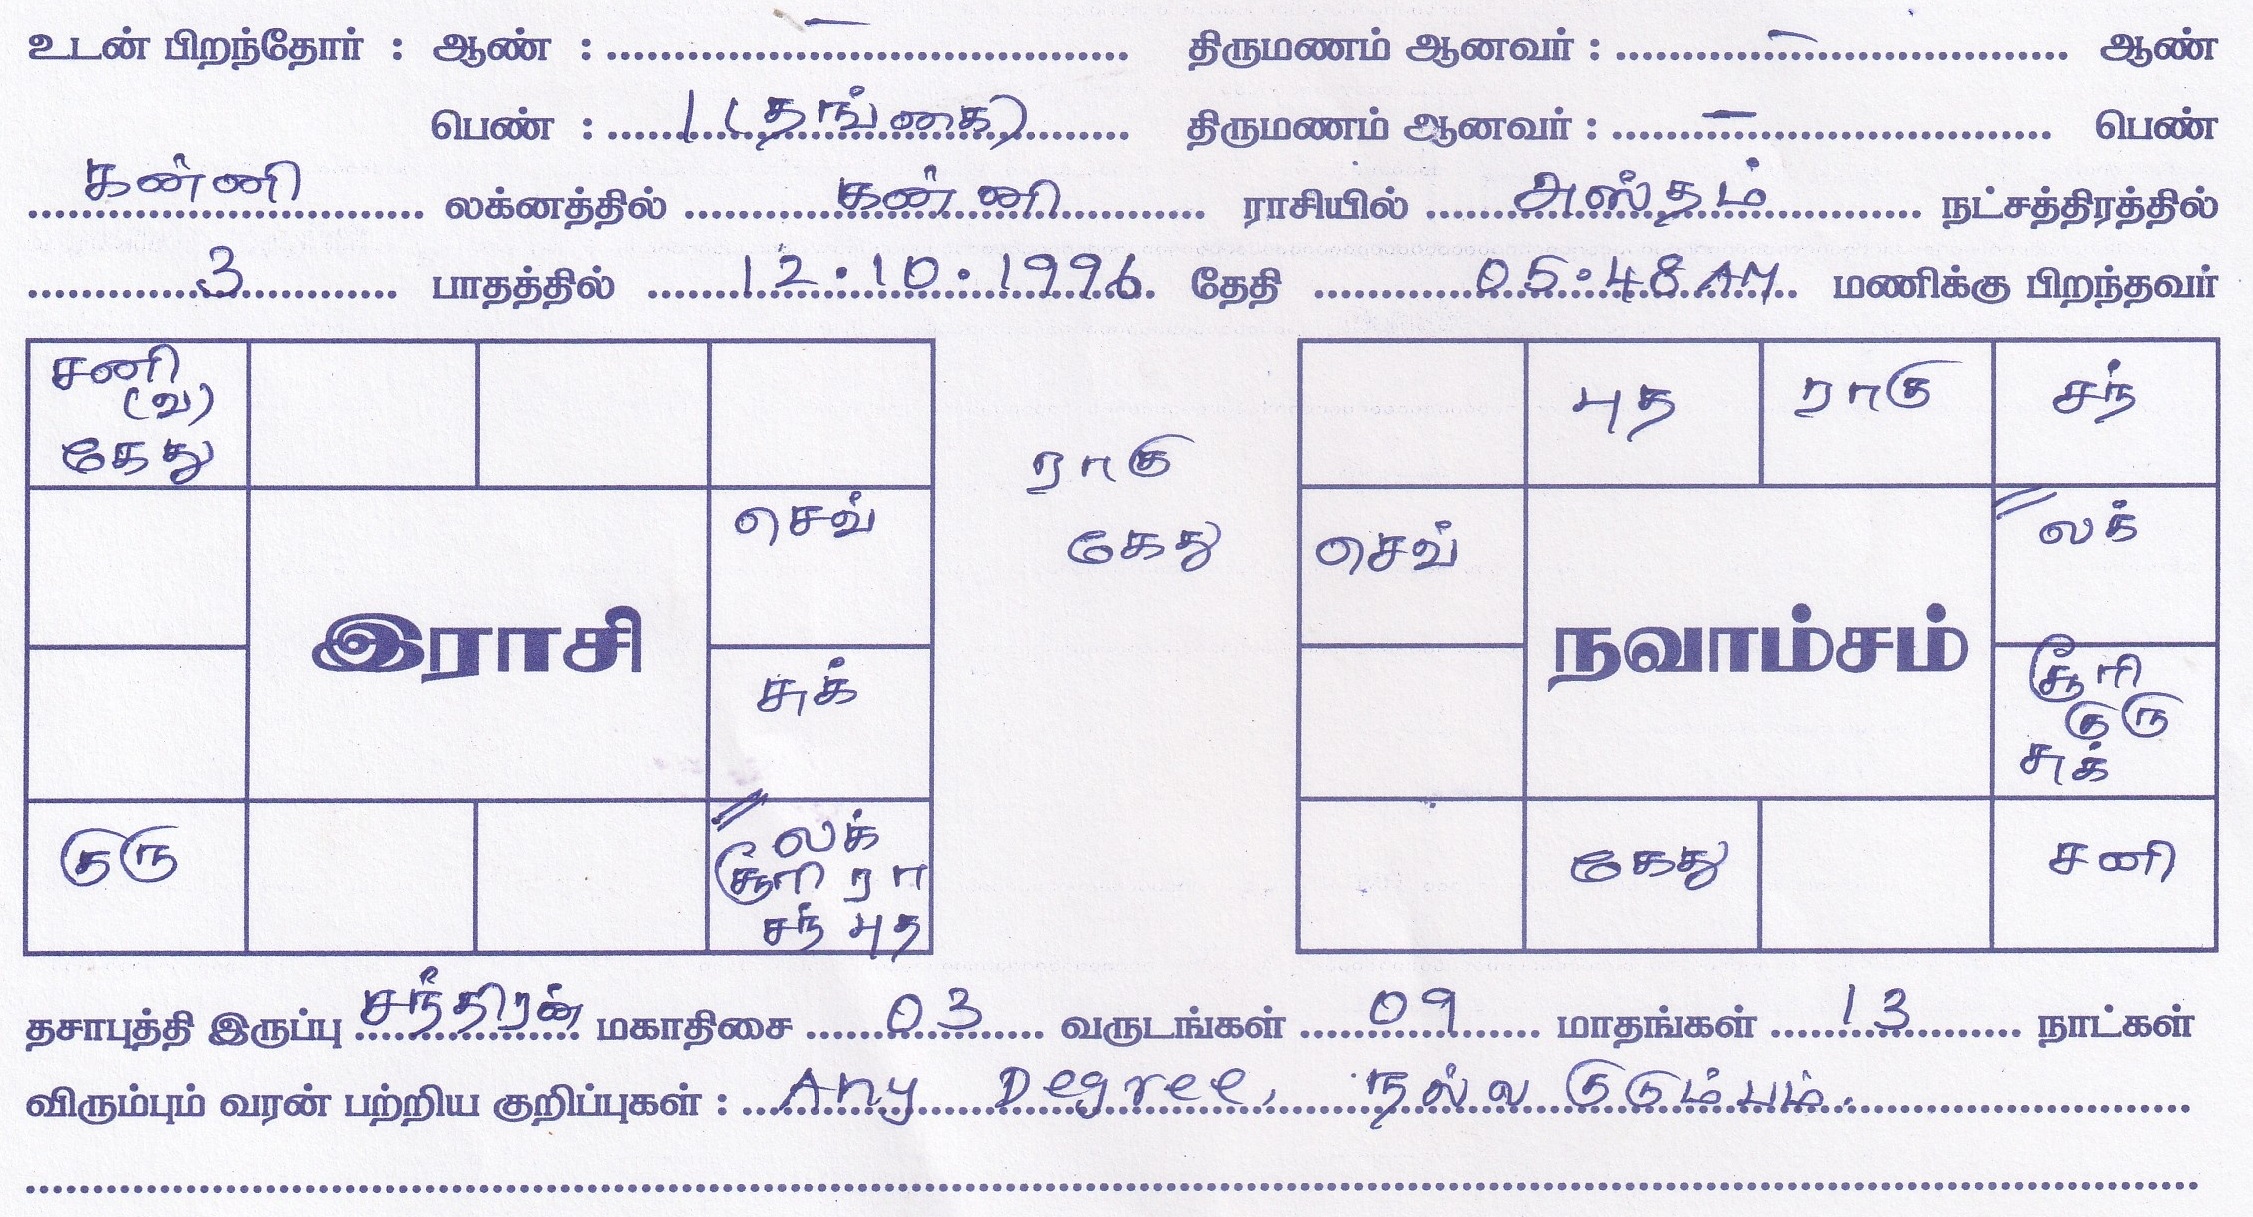 உடன் பிறந்தோர் : ஆண் : – திருமணம் ஆனவர் : – ஆண்
பெண் : 1 (தங்கை) திருமணம் ஆனவர் : – பெண்
கன்னி லக்னத்தில் கன்னி ராசியில் அஸ்தம் நட்சத்திரத்தில்
3 பாதத்தில் 12.10.1996 தேதி 05:48 AM மணிக்கு பிறந்தவர்
சனி
(வ)
கேது
செவ்
இராசி
சுக்
குரு
லக்
சூரி ரா
சந் புத
ராகு
கேது
புத ராகு சந்
செவ்
லக்
நவாம்சம்
சூரி
குரு
சுக்
கேது சனி
தசாபுத்தி இருப்பு சந்திரன் மகாதிசை 03 வருடங்கள் 09 மாதங்கள் 13 நாட்கள்
விரும்பும் வரன் பற்றிய குறிப்புகள் : Any Degree, நல்ல குடும்பம்.